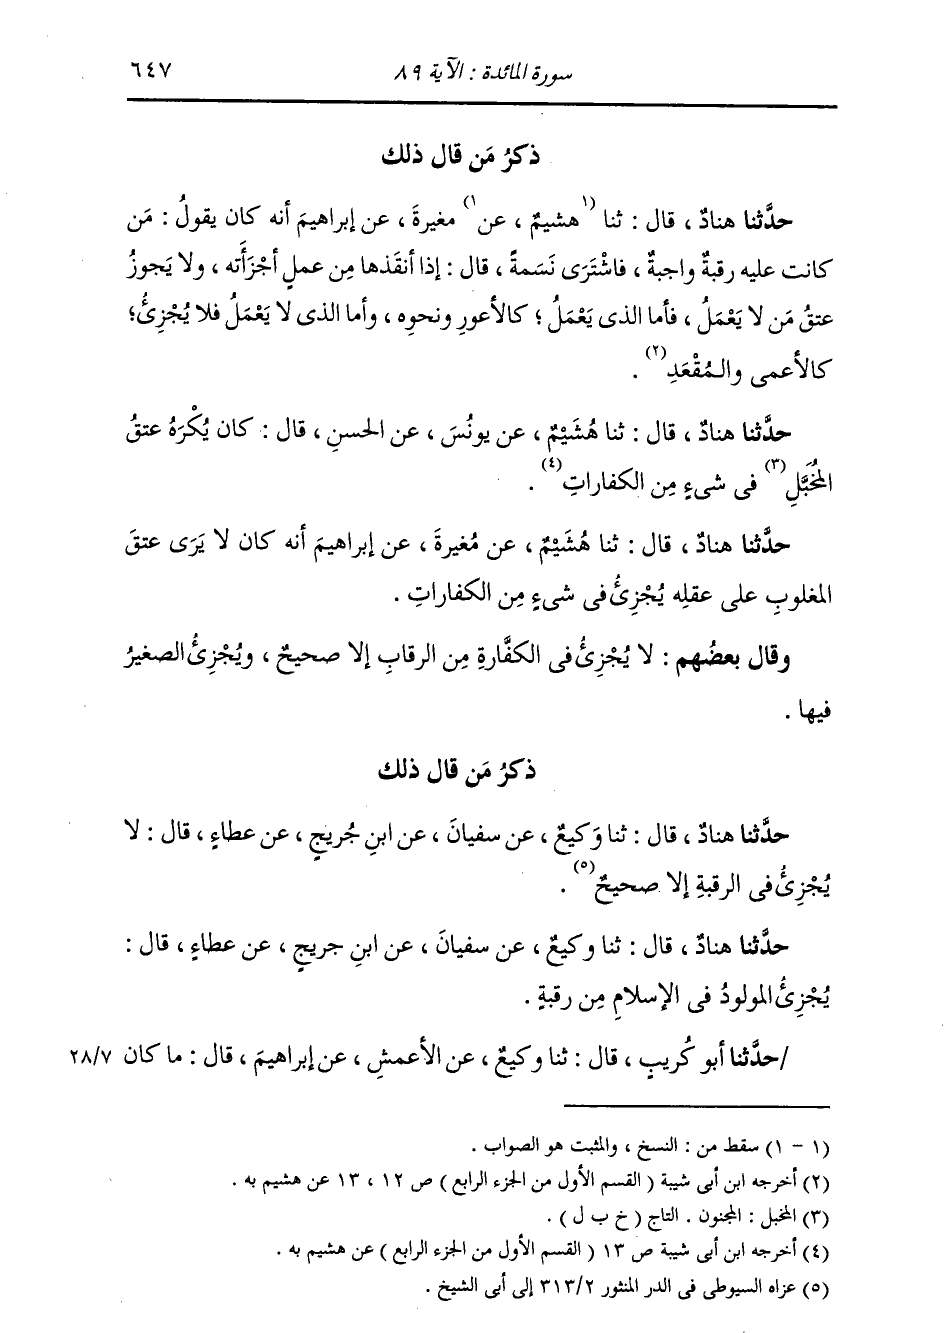 سورة المائدة : الآية ٨٩ ٦٤٧
ذكرُ مَن قال ذلك
حدَّثنا هنادٌ ، قال : ثنا (١هشيمٌ ، عن١) مغيرةَ ، عن إبراهيمَ أنه كان يقولُ : مَن
كانت عليه رقبةٌ واجبةٌ ، فاشْتَرَى نَسَمةً ، قال : إذا أنقَذها مِن عملٍ أجْزَأَته ، ولا يَجوزُ
عتقُ مَن لا يَعْمَلُ ، فأما الذى يَعْمَلُ ؛ كالأعورِ ونحوِه ، وأما الذى لا يَعْمَلُ فلا يُجْزِئُ؛
كالأعمى والمُقْعَدِ(٢) .
حدَّثنا هنادٌ ، قال : ثنا هُشَيْمٌ ، عن يونُسَ ، عن الحسنِ ، قال : كان يُكْرَهُ عتقُ
المُخَبَّلِ(٣) فى شىءٍ مِن الكفاراتِ(٤) .
حدَّثنا هنادٌ ، قال : ثنا هُشَيْمٌ ، عن مُغيرةَ ، عن إبراهيمَ أنه كان لا يَرَى عتقَ
المغلوبِ على عقلِه يُجْزِئُ فى شىءٍ مِن الكفاراتِ .
وقال بعضُهم : لا يُجْزِئُ فى الكفَّارةِ مِن الرقابِ إلا صحيحٌ ، ويُجْزِئُ الصغيرُ
فيها .
ذكرُ مَن قال ذلك
حدَّثنا هنادٌ ، قال : ثنا وَكيعٌ ، عن سفيانَ ، عن ابنِ جُريجٍ ، عن عطاءٍ ، قال : لا
يُجْزِئُ فى الرقبةِ إلا صحيحٌ(٥) .
حدَّثنا هنادٌ ، قال : ثنا وكيعٌ ، عن سفيانَ ، عن ابنِ جريجٍ ، عن عطاءٍ ، قال :
يُجْزِئُ المولودُ فى الإسلامِ مِن رقبةٍ .
/حدَّثنا أبو كُريبٍ ، قال : ثنا وكيعٌ ، عن الأعمشِ ، عن إبراهيمَ ، قال : ما كان ٢٨/٧
(١ - ١) سقط من : النسخ ، والمثبت هو الصواب .
(٢) أخرجه ابن أبى شيبة ( القسم الأول من الجزء الرابع ) ص ١٢ ، ١٣ عن هشيم به .
(٣) المخبل : المجنون . التاج ( خ ب ل ) .
(٤) أخرجه ابن أبى شيبة ص ١٣ ( القسم الأول من الجزء الرابع ) عن هشيم به .
(٥) عزاه السيوطى فى الدر المنثور ٣١٣/٢ إلى أبى الشيخ .